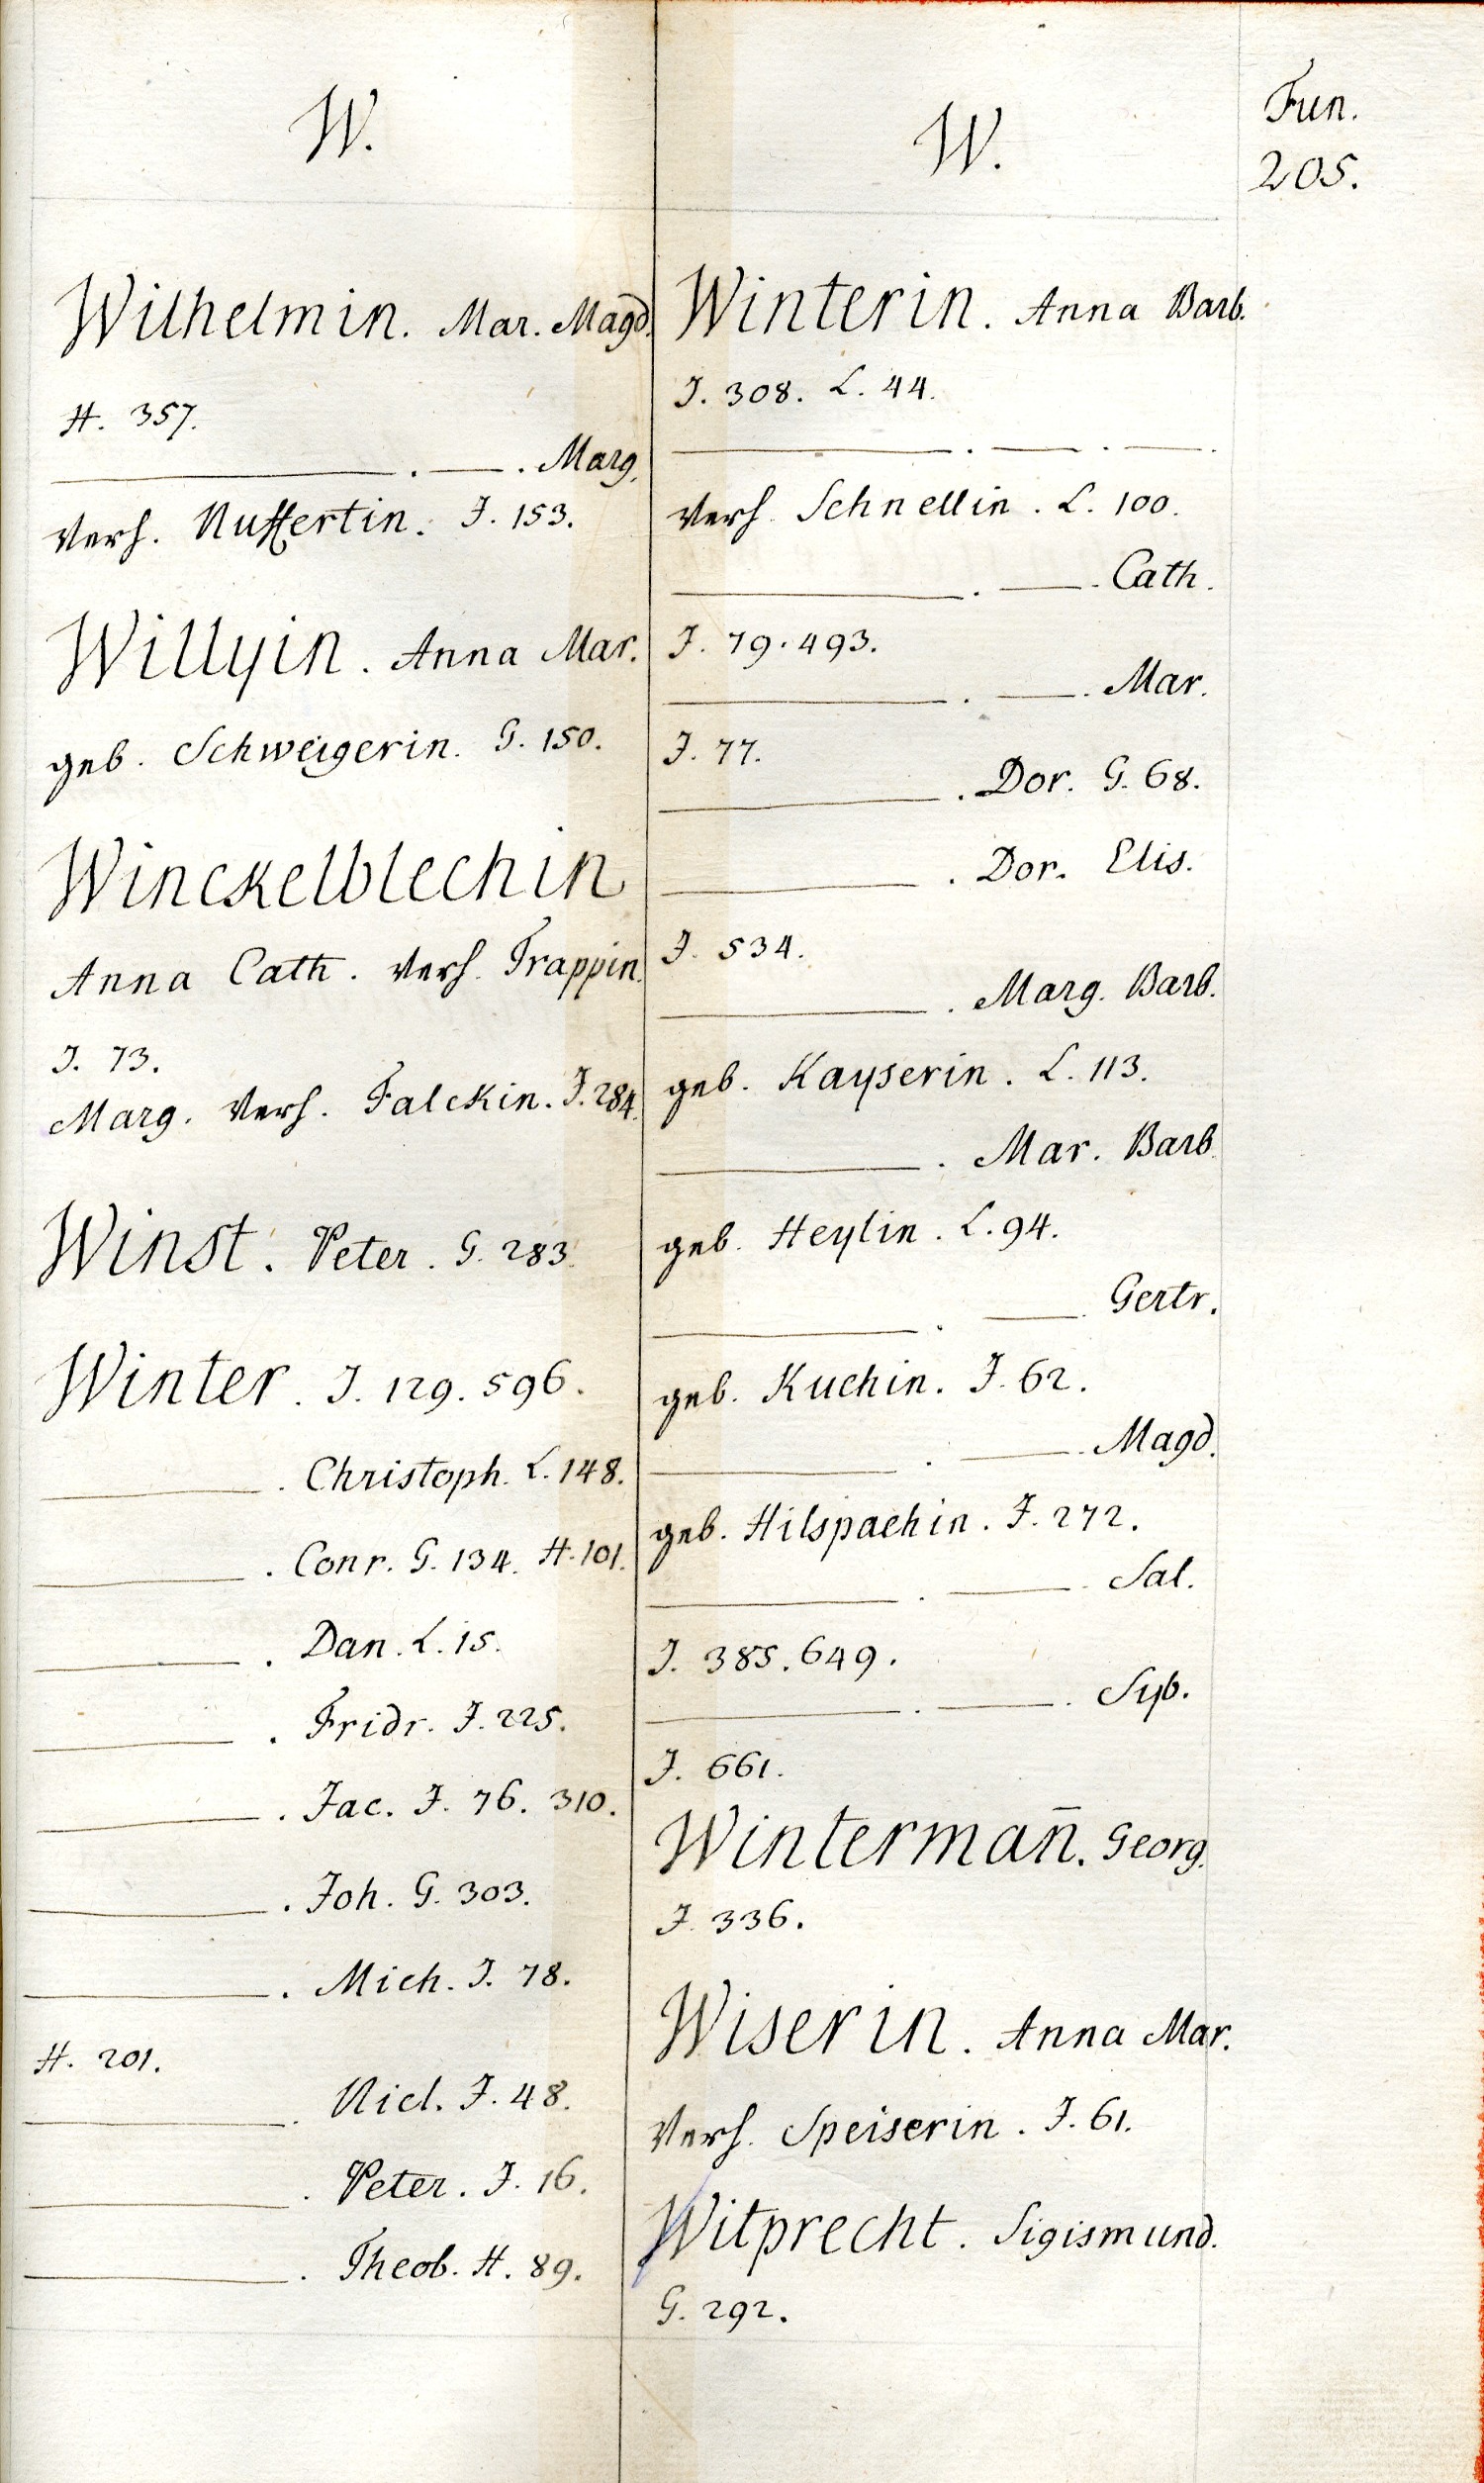 W.
Wilhelmin. Mar. Magd.
H. 357.
———. —. Marg.
verh. Nuffertin. J. 153.
Willyin. Anna Mar.
geb. Schweigerin. G. 150.
Winckelblechin
Anna Cath. verh. Trappin.
J. 73.
Marg. verh. Falckin. J. 284.
Winst. Peter. G. 283.
Winter. J. 129. 596.
———. Christoph. L. 148.
———. Conr. G. 134. H. 101.
———. Dan. L. 15.
———. Fridr. J. 225.
———. Jac. J. 76. 310.
———. Joh. G. 303.
———. Mich. J. 78.
H. 201.
———. Nicl. J. 48.
———. Peter. J. 16.
———. Theob. H. 89.
W.
Winterin. Anna Barb.
J. 308. L. 44.
———. —. —.
verh. Schnellin. L. 100.
———. —. Cath.
J. 79. 493.
———. —. Mar.
J. 77.
———. Dor. G. 68.
———. Dor. Elis.
J. 534.
———. Marg. Barb.
geb. Kayserin. L. 113.
———. Mar. Barb.
geb. Heylin. L. 94.
———. — Gertr.
geb. Kuchin. J. 62.
———. —. Magd.
geb. Hilspachin. J. 272.
———. —. Sal.
J. 385. 649.
———. —. Syb.
J. 661.
Wintermañ. Georg.
J. 336.
Wiserin. Anna Mar.
verh. Speiserin. J. 61.
Witprecht. Sigismund.
G. 292.
Fun.
205.